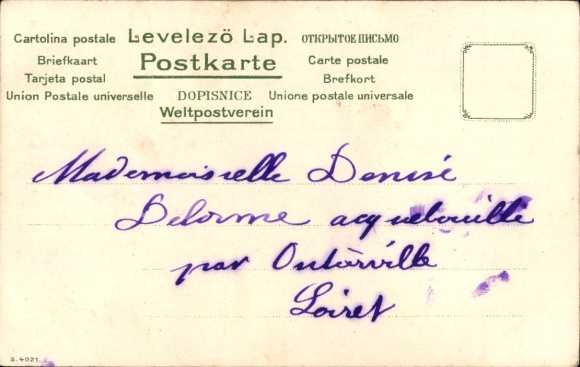 Cartolina postale Levelezö Lap. ОТКРЫТОЕ ПИСЬМО
Briefkaart Postkarte Carte postale
Tarjeta postal Brefkort
Union Postale universelle DOPISNICE Unione postale universale
Weltpostverein
Mademoiselle Denise
Delorme acquebouille
par Outarville
Loiret
S. 4021.